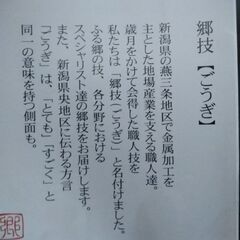 郷技【ごうぎ】
新潟県の燕三条地区で金属加工を
主とした地場産業を支える職人達。
歳月をかけて会得した職人技を
私たちは「郷技（ごうぎ）」と名付けました。
ふる郷の技、各分野における
スペシャリスト達の技をお届けします。
また、新潟県央地区に伝わる方言
「ごうぎ」は、「とても」「すごく」と
同一の意味を持つ側面も。
郷